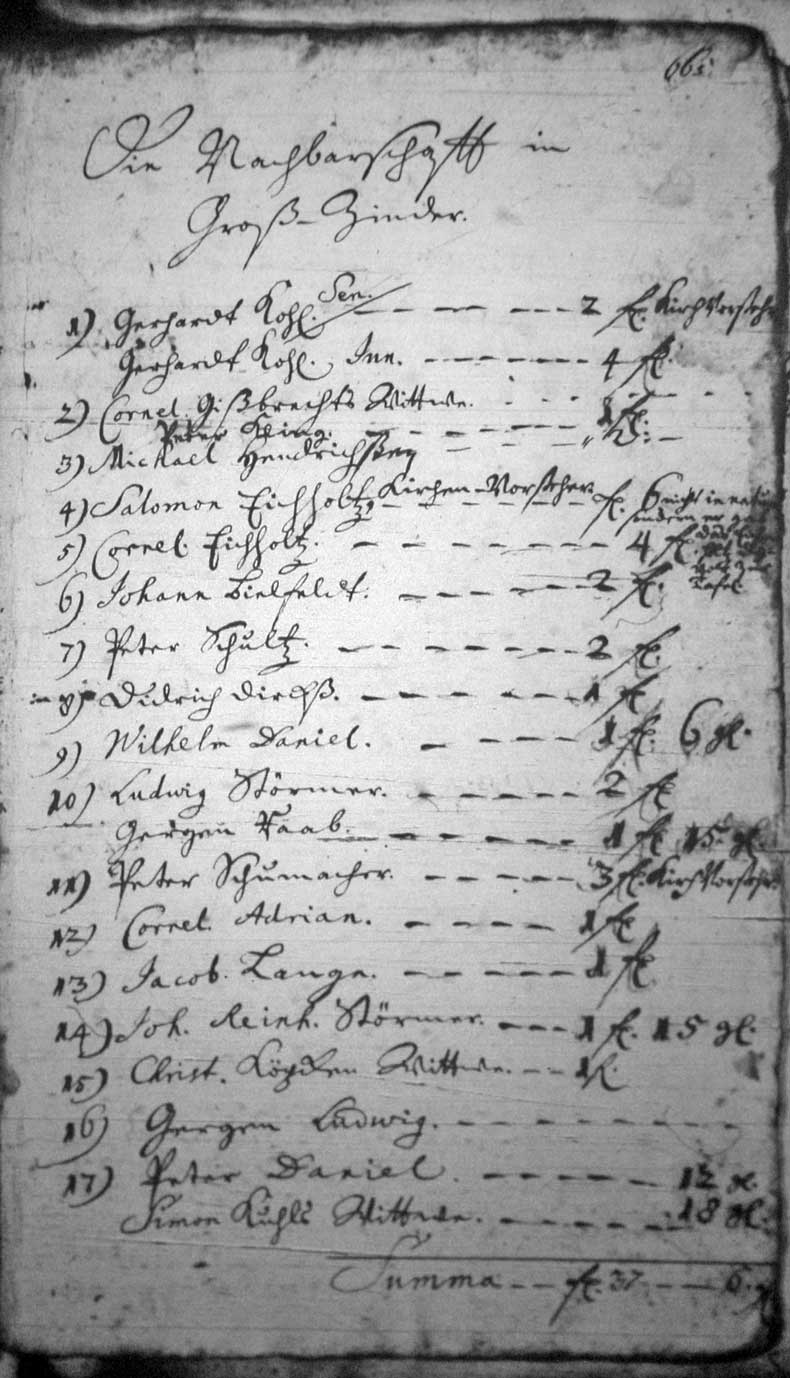 66
Die Nachbarschafft in
Groß-Zinder.
1) Gerhardt Kohl. Sen. – – – – 2 fl. Kirch Vorsteher
Gerhardt Kohl. Jun. – – – – – 4 fl.
2) Cornel. Gißbrechts Wittwe. – – – – 1 fl.
Peter Kling. – – – – –
3) Michael Hendrichßen – – – –
4) Salomon Eichholtz, Kirchen-Vorsteher fl. 6 nicht in natura
sondern er
5) Cornel. Eichholtz. – – – – – 4 fl.
6) Johann Bielfeldt. – – – – 2 fl.
Tafel.
7) Peter Schultz. – – – – – 2 fl.
8) Didrich Dircksß. – – – – – 1 fl.
9) Wilhelm Daniel. – – – – 1 fl. 6 gl.
10) Ludwig Störmer. – – – – 2 fl.
Gergen Raab. – – – – – 1 fl. 15 gl.
11) Peter Schumacher. – – – – 3 fl. Kirch Vorsteher
12) Cornel. Adrian. – – – – 1 fl.
13) Jacob. Lange. – – – – – 1 fl.
14) Joh. Reinh. Störmer. – – – 1 fl. 15 gl.
15) Christ. Wittwe. – – 1 fl.
16) Gergen Ludwig. – – – – – – –
17) Peter Daniel. – – – – – 12 gl.
Simon Kuhls Wittwe. – – – – – 18 gl.
Summa – – fl. 37 – – – 6. gl.